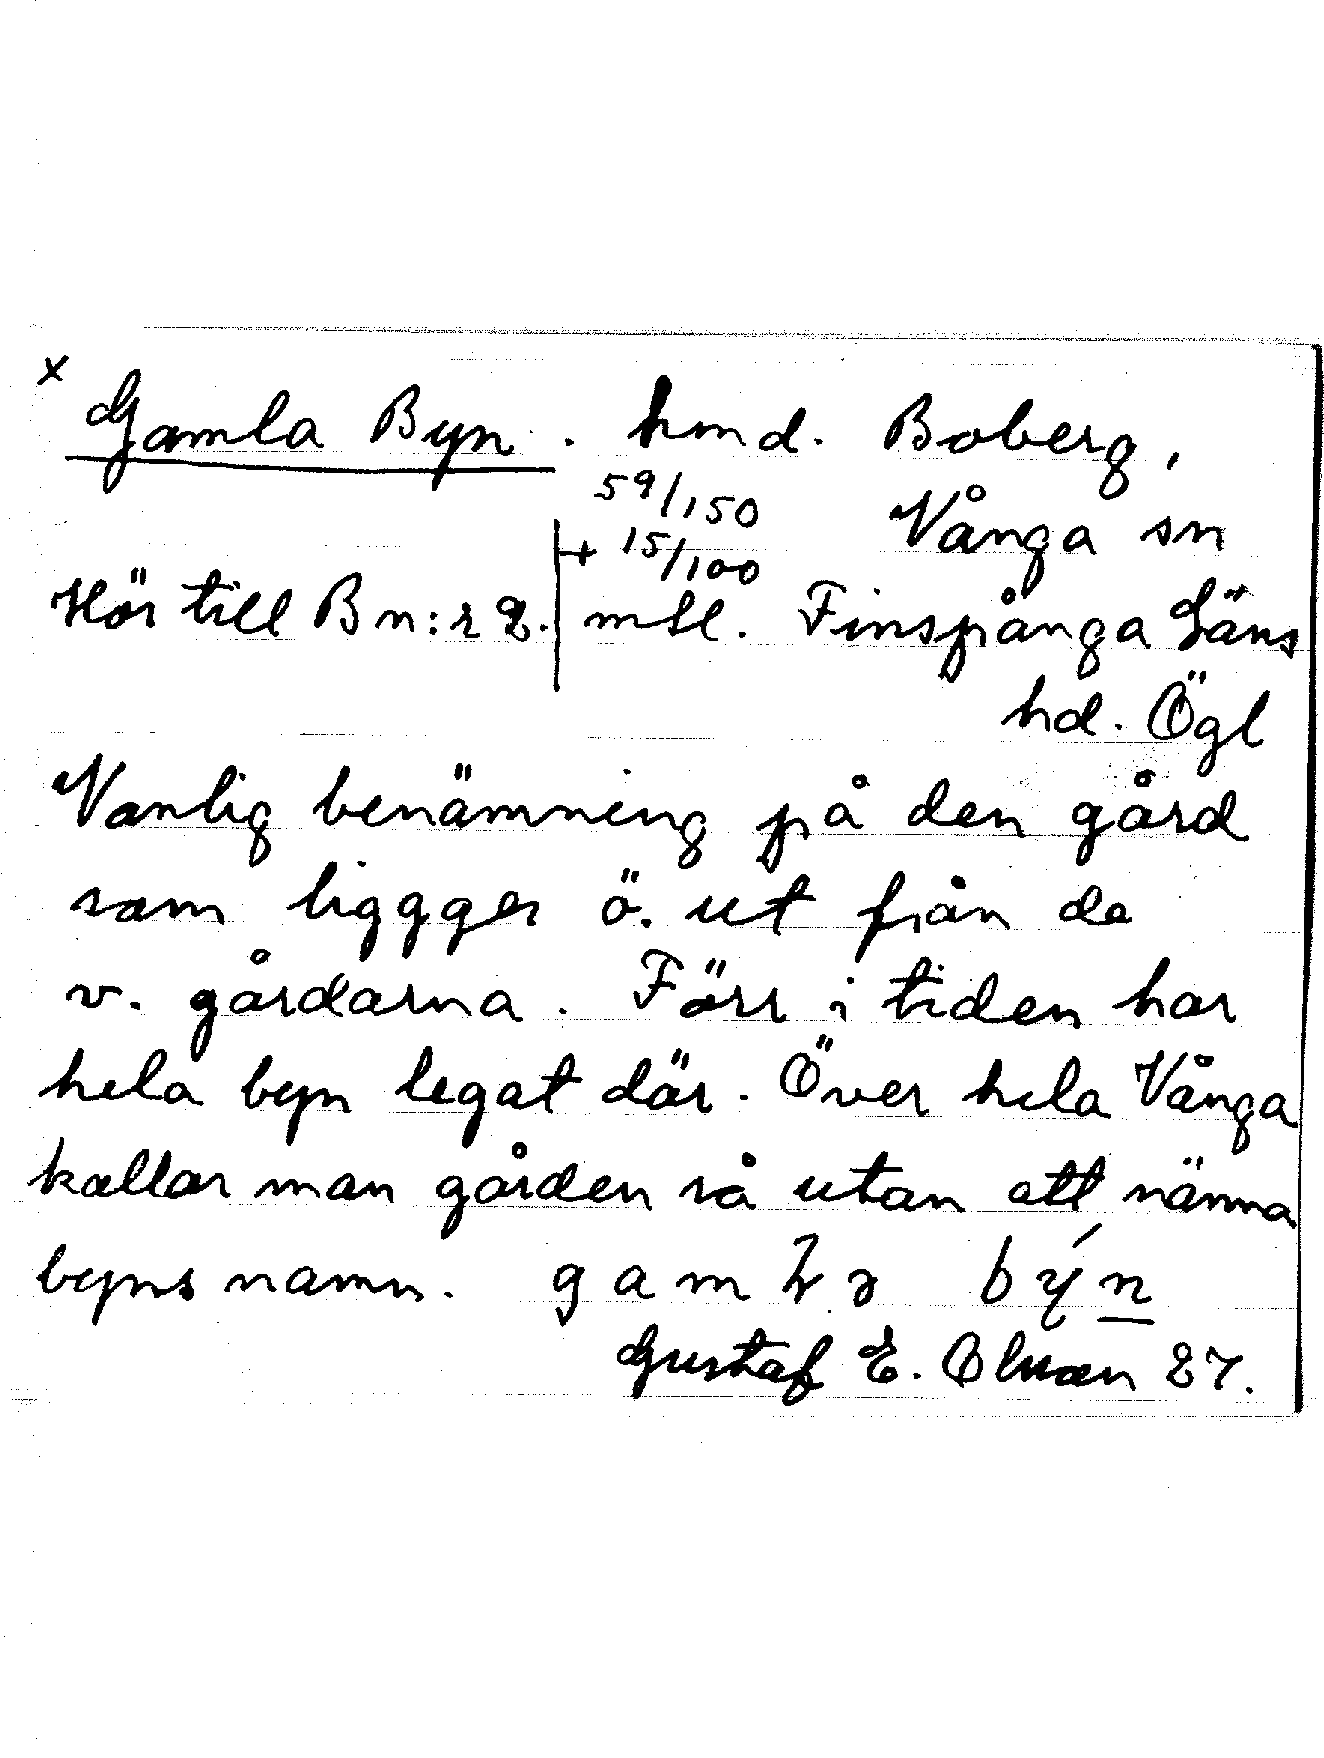 x Gamla Byn. hmd. Boberg,
59/150 Vånga sn
+ 15/100
Hör till B n:r 2. mtl. Finspånga Läns
hd. Ögl
Vanlig benämning på den gård
som liggger ö. ut från de
v. gårdarna. Förr i tiden har
hela byn legat där. Över hela Vånga
kallar man gården så utan att nämna
byns namn. gamɫɔ býn
Gustaf E. 27.